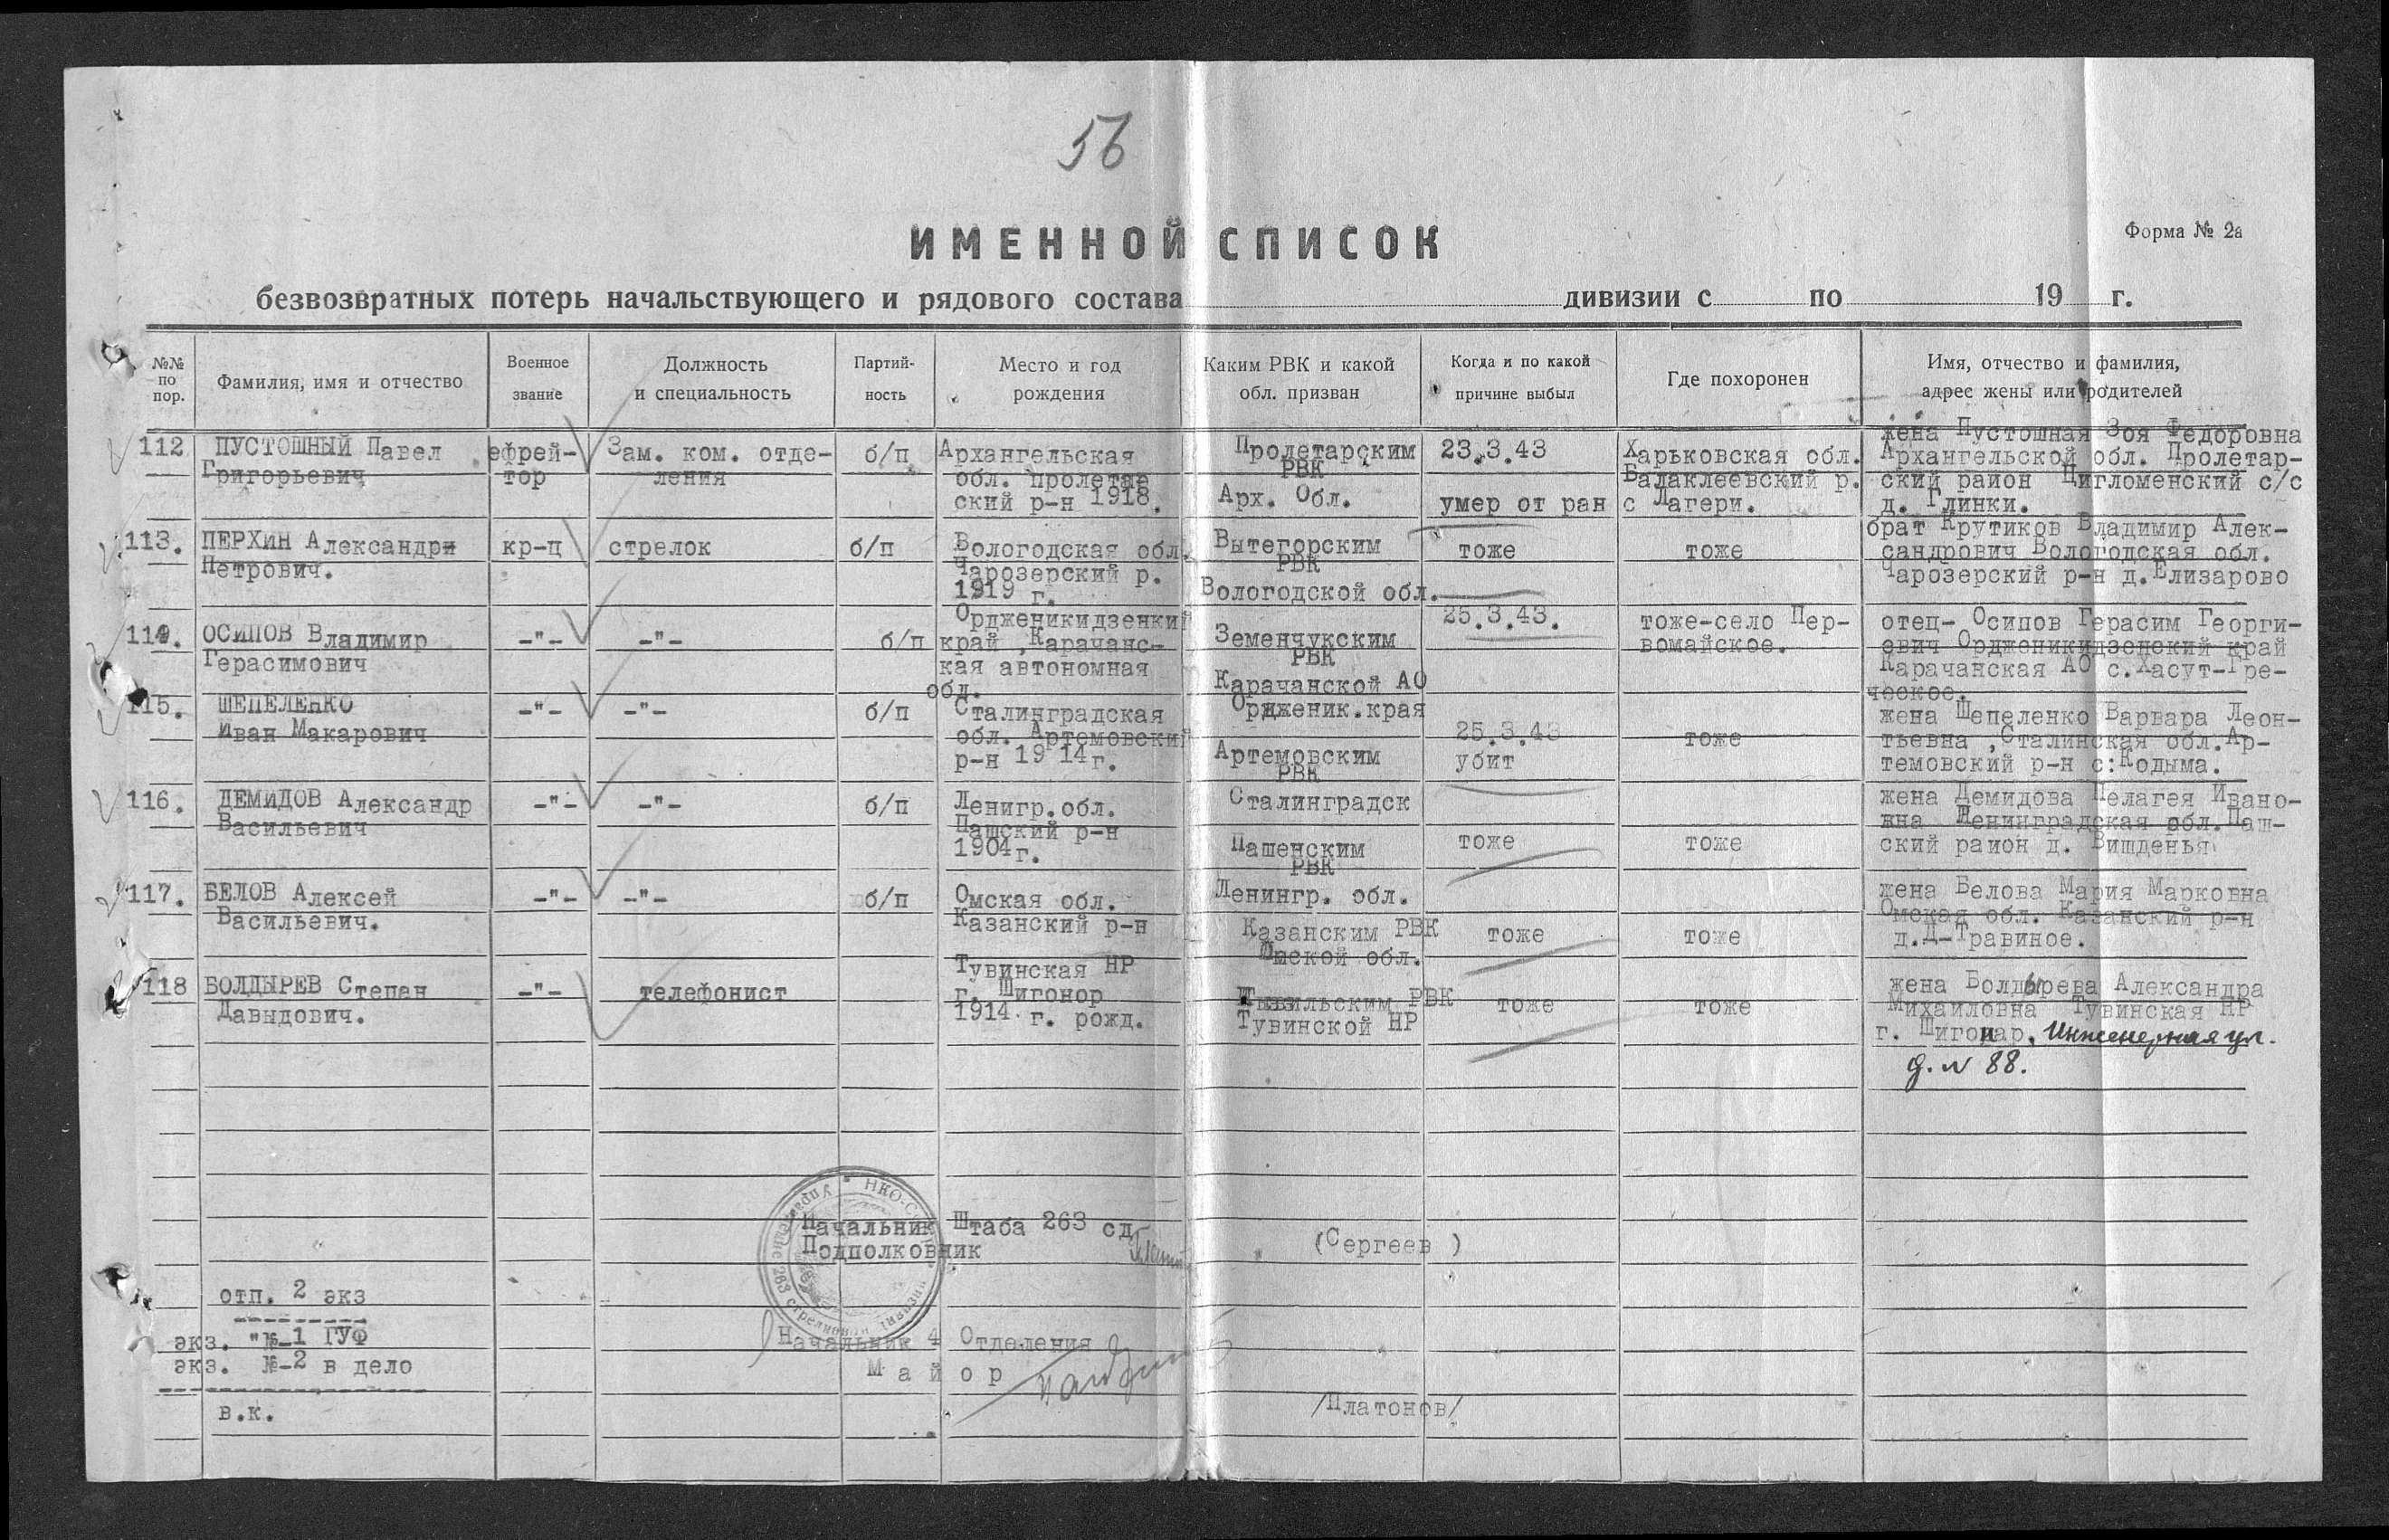 56
ИМЕННОЙ СПИСОК
Форма № 2а
безвозвратных потерь начальствующего и рядового состава дивизии с по 19 г.
№№ по пор.
Фамилия, имя и отчество
Военное звание
Должность и специальность
Партий-ность
Место и год рождения
Каким РВК и какой обл. призван
Когда и по какой причине выбыл
Где похоронен
Имя, отчество и фамилия, адрес жены или родителей
112
ПУСТОШНЫЙ Павел
Григорьевич
ефрей-
тор
Зам. ком. отде-
ления
б/п
Архангельская
обл. пролетар
ский р-н 1918.
Пролетарским
РВК
Арх. Обл.
23.3.43
умер от ран
Харьковская обл.
Балаклеевский р.
с Лагери.
жена Пустошная Зоя Федоровна
Архангельской обл. Пролетар-
ский район Цигломенский с/с
д. Глинки.
113.
ПЕРХИН Александр
Петрович.
кр-ц
стрелок
б/п
Вологодская обл.
Чарозерский р.
1919 г.
Вытегорским
РВК
Вологодской обл.
тоже
тоже
брат Крутиков Владимир Алек-
сандрович Вологодская обл.
Чарозерский р-н д.Елизарово
114.
ОСИПОВ Владимир
Герасимович
-"-
-"-
б/п
Ордженикидзенкий
край ,Карачанс-
кая автономная
обл.
Земенчукским
РВК
Карачанской АО
Ордженик.края
25.3.43.
тоже-село Пер-
вомайское.
отец- Осипов Герасим Георги-
евич Ордженикидзенский край
Карачанская АО с.Хасут-Гре-
ческое.
115.
ШЕПЕЛЕНКО
Иван Макарович
-"-
-"-
б/п
Сталинградская
обл. Артемовский
р-н 1914г.
Артемовским
РВК
Сталинградск
25.3.43
убит
тоже
жена Шепеленко Варвара Леон-
тьевна ,Сталинская обл.Ар-
темовский р-н с:Кодыма.
116.
ДЕМИДОВ Александр
Васильевич
-"-
-"-
б/п
Ленигр.обл.
Пашский р-н
1904г.
Пашенским
РВК
Ленингр. обл.
тоже
тоже
жена Демидова Пелагея Ивано-
вна Ленинградская обл.Паш-
ский район д. Вишденья
117.
БЕЛОВ Алексей
Васильевич.
-"-
-"-
б/п
Омская обл.
Казанский р-н
Казанским РВК
обл.
тоже
тоже
жена Белова Мария Марковна
Омская обл. Казанский р-н
д.Д-Травиное.
118
БОЛДЫРЕВ Степан
Давыдович.
-"-
телефонист
Тувинская НР
г. Шигонор
1914 г. рожд.
РВК
Тувинской НР
тоже
тоже
жена Болдырева Александра
Михайловна Тувинская НР
г. Шигонар. Инженерная ул.
д. № 88.
Начальник Штаба 263 сд
Подполковник
(Сергеев )
отп. 2 экз
экз. "№-1 ГУФ
экз. №-2 в дело
в.к.
Начальник 4 Отделения
Майор
/Платонов/